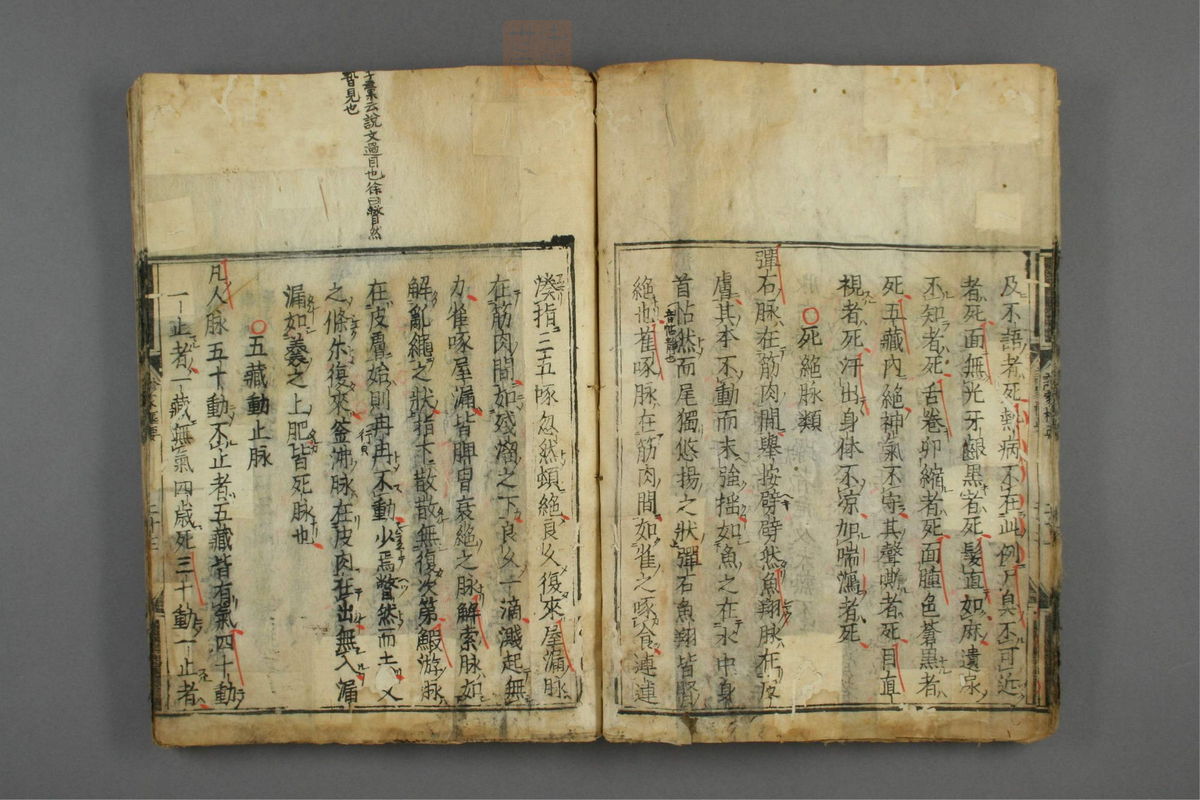 及不語者死熱病不在此例尸臭不可近
者死面無光牙齦黒者死髮直如麻遺尿
不知者死舌卷卵縮者死面腫色蒼黒者
死五藏内絶神氣不守其聲嘶者死目直
視者死汗出身体不凉加喘瀉者死
〇死絶脉類
彈石脉在筋肉間舉按劈劈然魚翔脉在皮
膚其本不動而末強揺如魚之在水中身
首帖然而尾獨悠揚之狀彈石魚翔皆腎
音怗靜也
絶也雀啄脉在筋肉間如雀之啄食連連
湊指三五啄忽然頓絶良久復來屋漏脉
在筋肉間如残溜之下良久一滴濺起無
力雀啄屋漏皆脾胃衰絶之脉解索脉如
解亂繩之狀指下散散無復次第鰕游脉
在皮膚始則冉冉不動少焉瞥然而去久
行皃
之倏尓復來釜沸脉在皮肉在出無入漏
漏如羹之上肥皆死脉也
〇五藏動止脉
凡人脉五十動不止者五藏皆有氣四十動
一止者一藏無氣四歳死三十動一止者
云説文過目也徐曰瞥然
暫見也